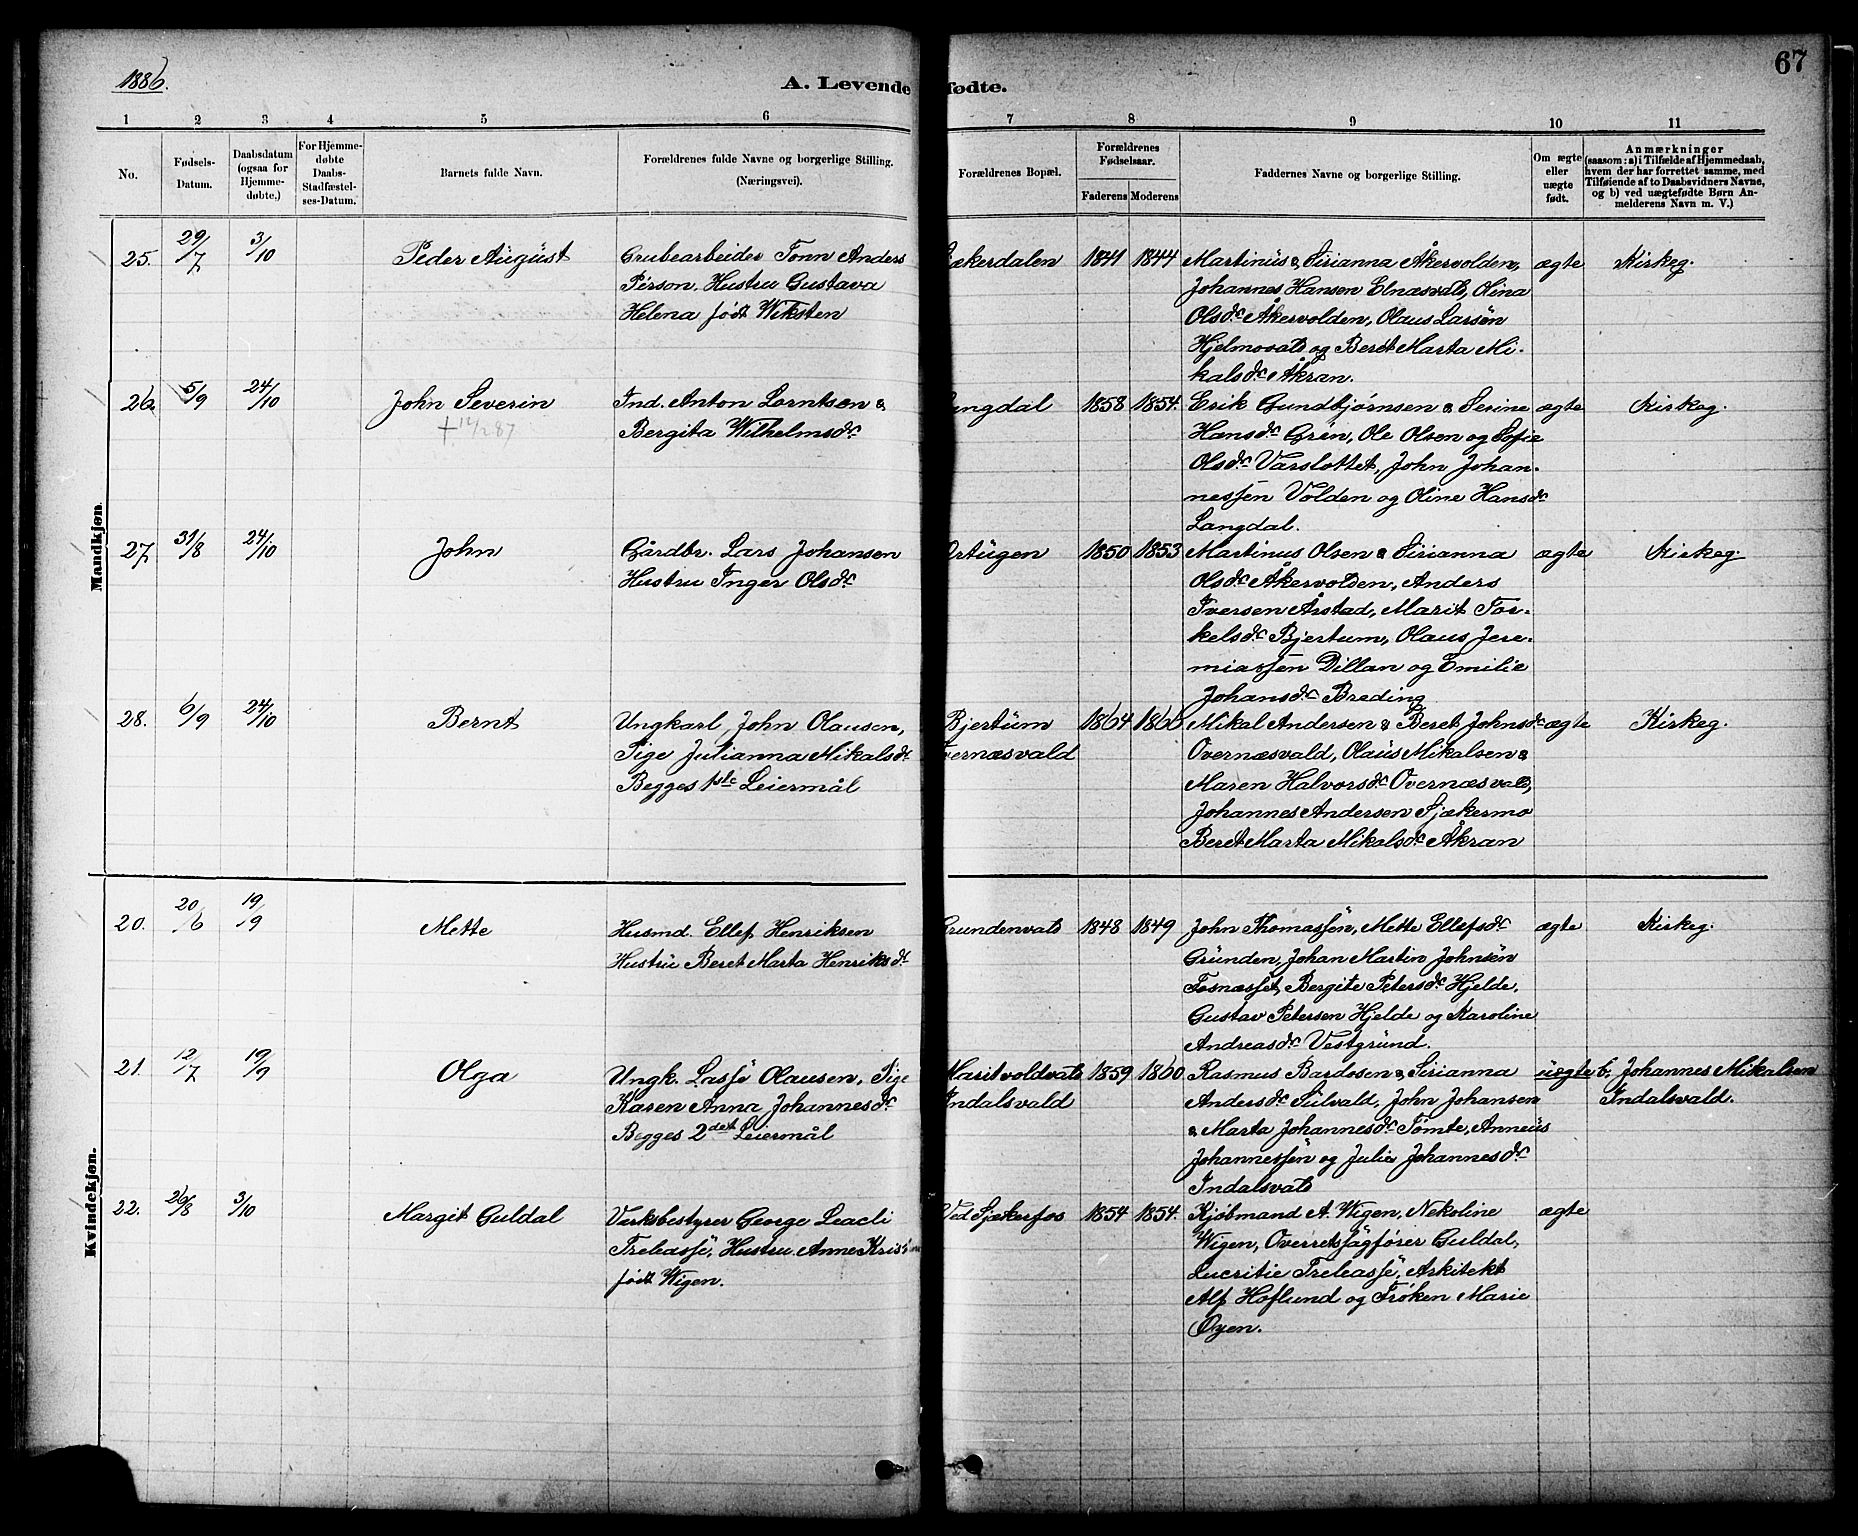 1886.
A. Levende
fødte.
67
1
2
3
4
5
6
7
8
9
10
11
No.
Fødsels-
Datum.
Daabsdatum
(ogsaa for
Hjemme-
døbte.)
For Hjemme-
døbte
Daabs-
Stadfæstel-
ses-Datum.
Barnets fulde Navn.
Forældrenes fulde Navne og borgerlige Stilling.
(Næringsvei).
Forældrenes Bopæl.
Forældrenes
Fødselsaar.
Faderens
Moderens
Faddernes Navne og borgerlige Stilling.
Om ægte
eller
uægte
født.
Anmærkninger
(saasom: a) i Tilfælde af Hjemmedaab,
hvem der har forrettet samme, med
Tilføiende af to Daabsvidners Navne,
og b) ved uægtefødte Børn An-
melderens Navn m. V.)
Mandkjøn.
25.
29/7
3/10
Peder August
Grubearbeider Tonn Anders
Pérson, Hustru Gustava
Helena født Wiksten
Sjækerdalen
1841
1844
Martinus & Sirianna Åkervolden,
Johannes Hansen Elnæsvald, Olina
Olsdr Åkervolden, Olaus Larsen
Hjelmosvald og Beret Marta Mi-
kalsdr Åkran.
ægte
Kirkeg.
26.
5/9
24/10
John Severin
+ 14/2 87
Ind. Anton Lorntsen &
Bergita Wilhelmsdr
Langdal
1858
1854.
Erik Gundbjørnsen & Serine
Hansdr Grön, Ole Olsen og Sofie
Olsdr Varslottet, John Johan-
nessen Volden og Oline Hansdr
Langdal.
ægte
Kirkeg.
27.
31/8
24/10
John
Gårdbr. Lars Johansen
Hustru Inger Olsdr
Ortugen
1850
1853
Martinus Olsen & Sirianna
Olsdr Åkervolden, Anders
Iversen Årstad, Marit Tor-
kelsdr Bjertum, Olaus Jere-
miassen Dillan og Emilie
Johansdr Breding
ægte
Kirkeg.
28.
6/9
24/10
Bernt
Ungkarl, John Olausen,
Pige Julianna Mikalsdr
Begges 1ste Leiermål
Bjertum
Overnæsvald
1864
1866
Mikal Andersen & Beret Johnsdr
Overnæsvald, Olaus Mikalsen &
Maren Halvorsdr Overnæsvald,
Johannes Andersen Sjækermo
Beret Marta Mikalsdr Åkran
ægte
Kirkeg.
Kvindekjøn.
20.
20/6
19/9
Mette
Husmd. Ellef Henriksen
Hustru Beret Marta Henriksdr
Grundenvald
1848
1849
John Thomassen, Mette Ellefsdr
Grunden, Johan Martin Johnsen
Tosnæsset, Bergite Petersdr Hjelde,
Gustav Petersen Hjelde og Karoline
Andreasdr Vestgrund.
ægte
Kirkeg.
21.
12/7
19/9
Olga
Ungk. Lasse Olausen, Pige
Karen Anna Johannesdr
Begges 2det Leiermål
Maritvoldvald
Indalsvald
1859
1860
Rasmus Bardosen & Sirianna
Andersdr Sulvald, John Johansen
& Marta Johannesdr Tømte, Anneus
Johannessen og Julie Johannesdr
Indalsvald
uægte
b. Johannes Mikalsen
Indalsvald.
22.
26/8
3/10
Margit Guldal
Verksbestyrer George Leach
Trelease, Hustru Anne
født Wigen.
Ved Sjækerfos
1854
1854.
Kjøbmand A. Wigen, Nekoline
Wigen, Overretssagfører Guldal,
Lucritie Trelease, Arkitekt
Alf Hoflund og Frøken Marie
Oyen.
ægte